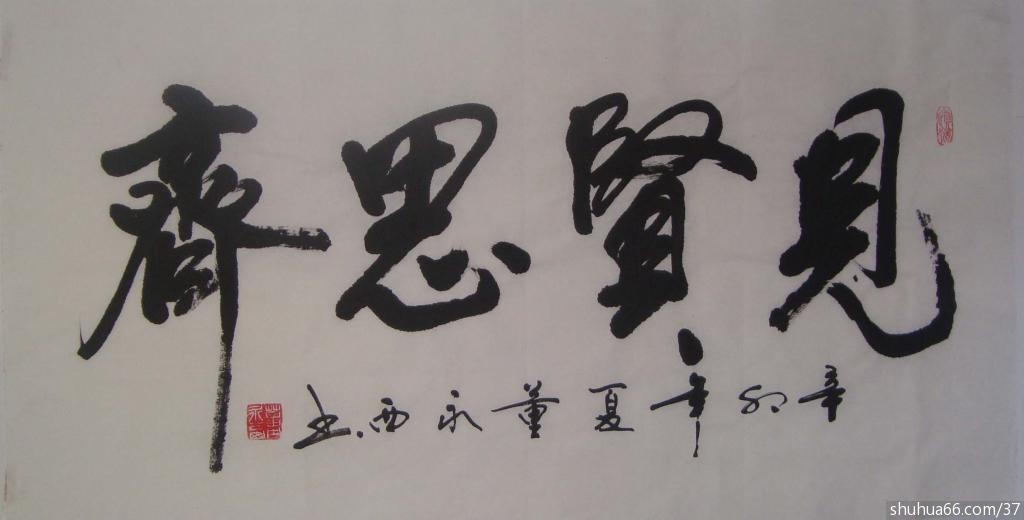 見賢思齊
辛卯年夏董永西书
shuhua66.com/37